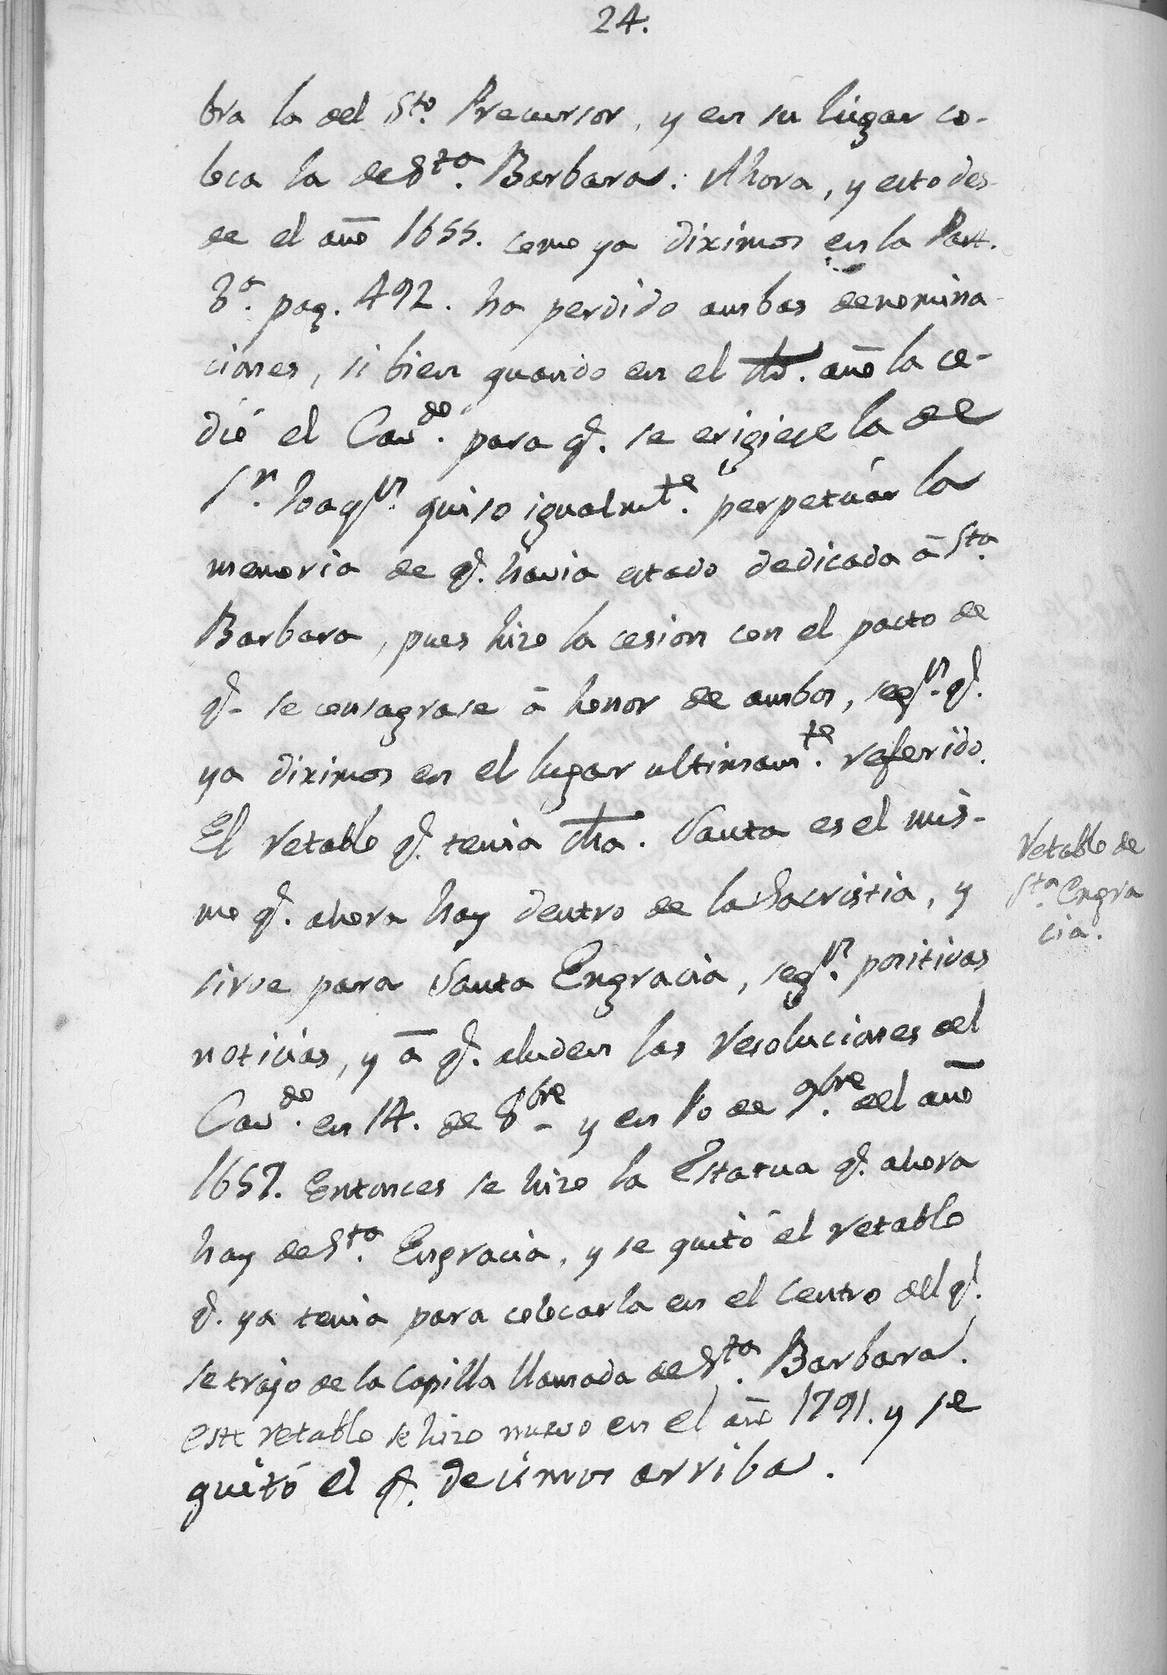 24.
bra la del Sto. Precursor, y en su lugar co-
loca la de Sta. Barbara. Ahora, y esto des-
de el año 1655. como ya diximos en la Part.
3a. pag. 492. ha perdido ambas denomina-
ciones, si bien quando en el dho. año la ce-
dió el Cavdo. para q. se erigiese la de
Sn. Joaqn. quiso igualmte. perpetuár la
memoria de q. havia estado dedicada á Sta.
Barbara, pues hizo la cesion con el pacto de
q. se consagrase á honor de ambos, segn. q.
ya diximos en el lugar ultimamte. referido.
El retablo q. tenia dha. Santa es el mis-
mo q. ahora hay dentro de la Sacristia, y
sirve para Santa Engracia, segn. positivas
noticias, y á q. aluden las resoluciones del
Cavdo. en 14. de 8bre y en 10 de 9bre. del año
1657. Entonces se hizo la Estatua q. ahora
hay de Sta. Engracia, y se quitó el retablo
q. ya tenia para colocarla en el centro del q.
se trajo de la Capilla llamada de Sta. Barbara.
este retablo se hizo nuevo en el año 1791. y se
quitó el q. decimos arriba.
Retablo de
Sta. Engra
cia.